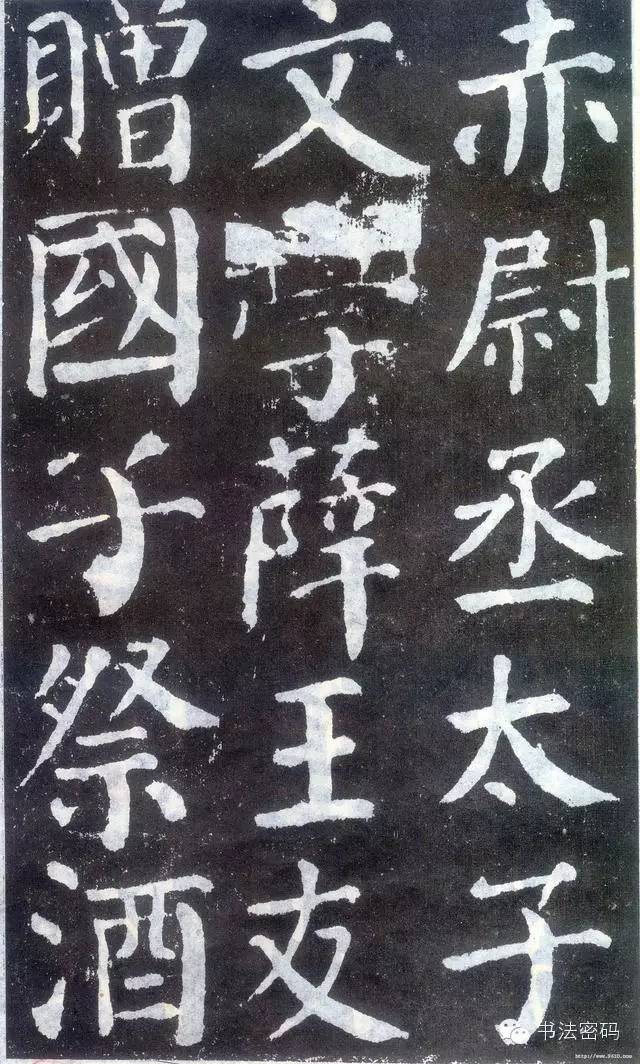 赤尉丞太子
文学薛王友
贈國子祭酒
书法密码
http://www.9610.com